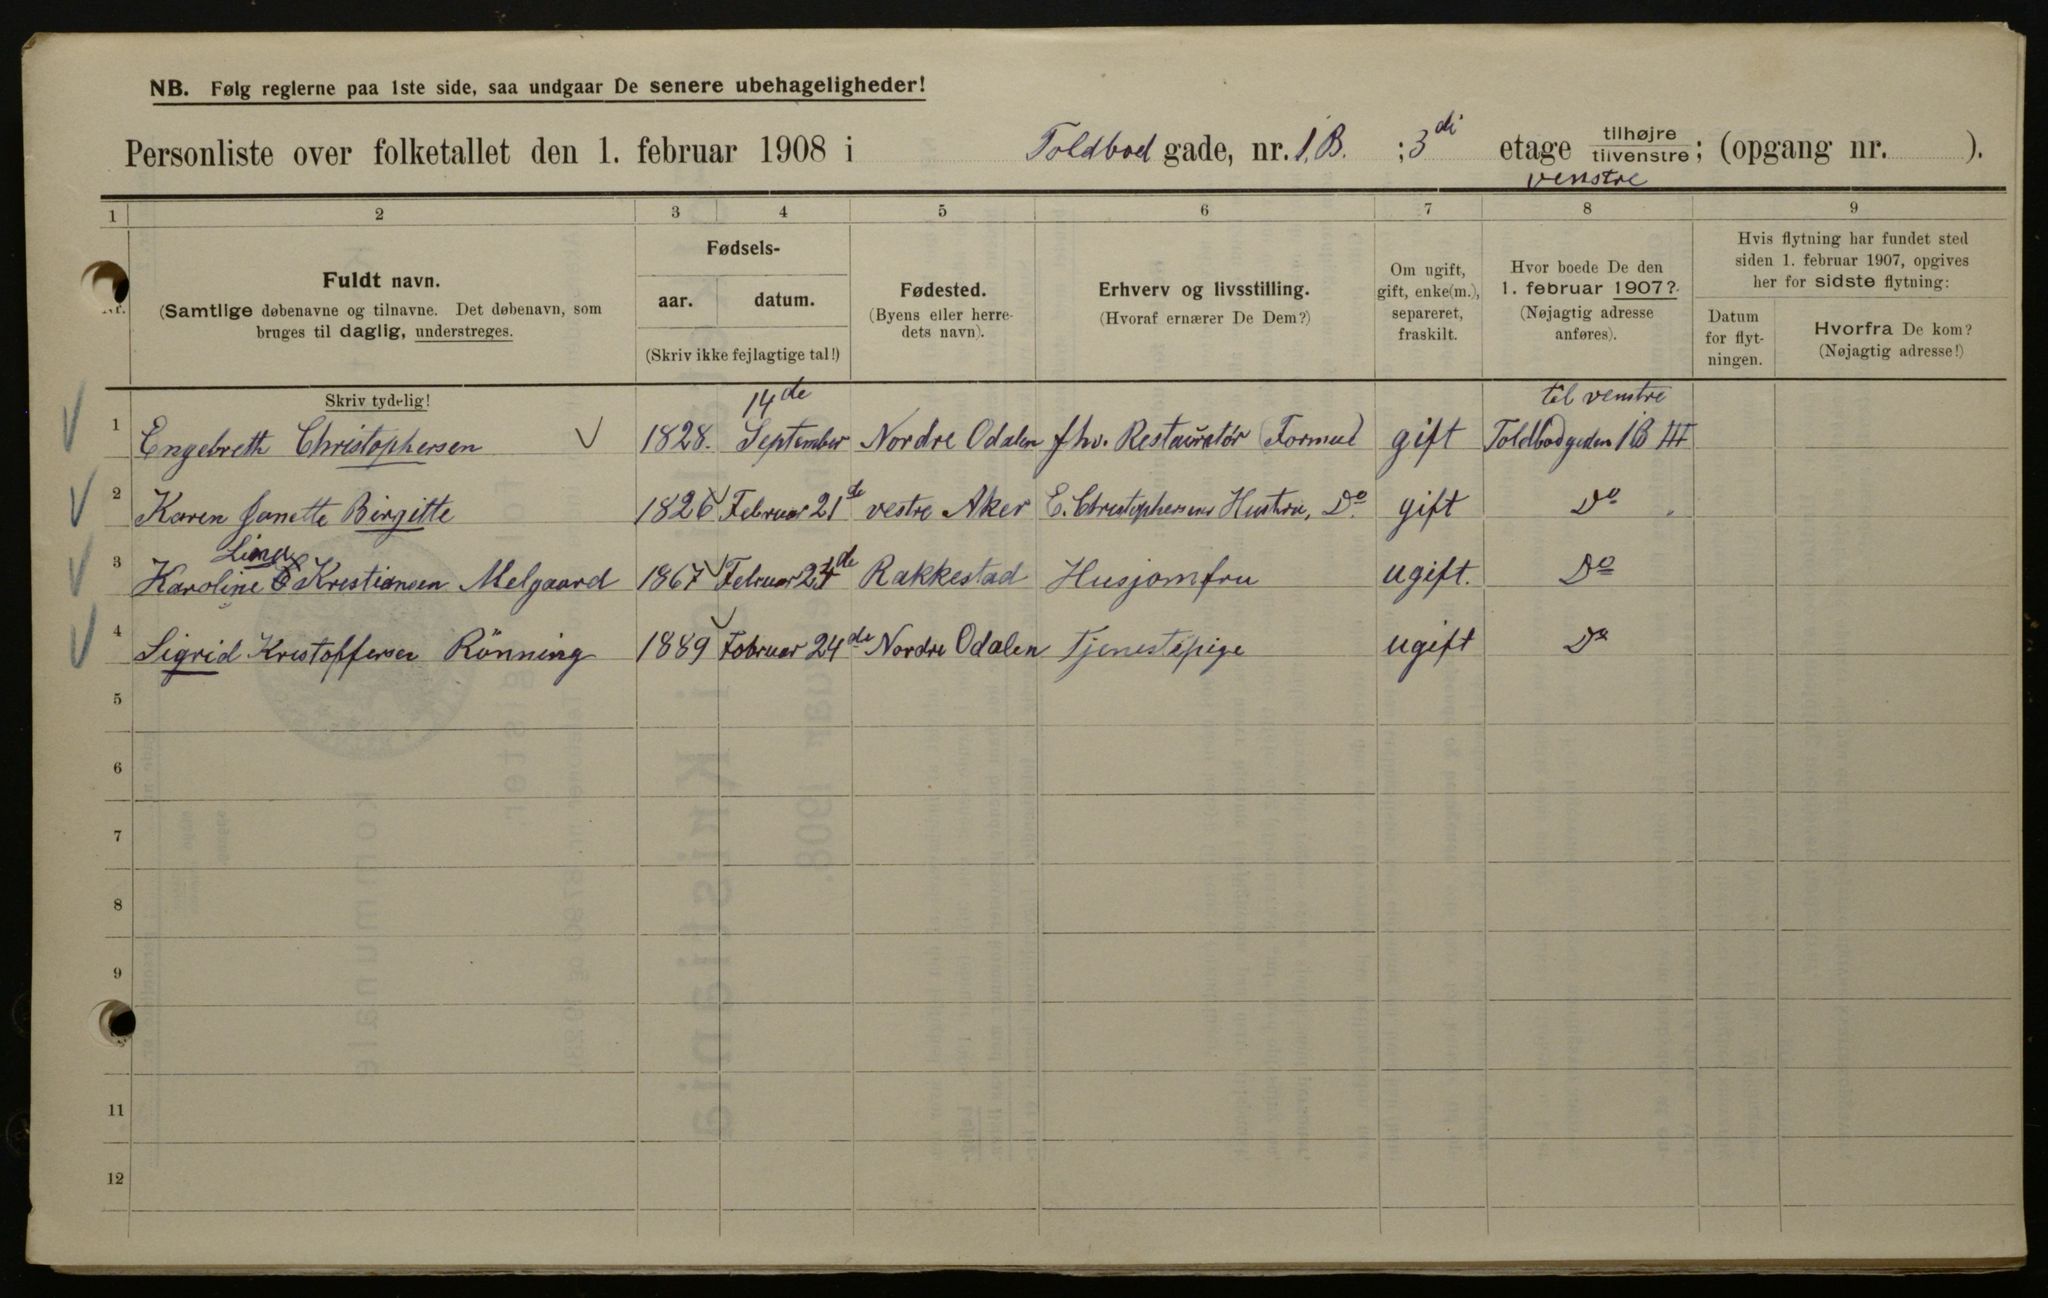 NB. Følg reglerne paa 1ste side, saa undgaar De senere ubehageligheder!
Personliste over folketallet den 1. februar 1908 i Toldbod gade, nr. 1.B. ; 3di etage tilhøjre/tilvenstre; (opgang nr. ).
venstre
1 2 3 4 5 6 7 8 9
Nr.
Fuldt navn.
(Samtlige døbenavne og tilnavne. Det døbenavn, som
bruges til daglig, understreges.
Skriv tydelig!
Fødsels-
aar. datum.
(Skriv ikke fejlagtige tal!)
Fødested.
(Byens eller herre-
dets navn).
Erhverv og livsstilling.
(Hvoraf ernærer De Dem?)
Om ugift,
gift, enke(m.),
separeret,
fraskilt.
Hvor boede De den
1. februar 1907?
(Nøjagtig adresse
anføres).
Hvis flytning har fundet sted
siden 1. februar 1907, opgives
her for sidste flytning:
Datum
for flyt-
ningen.
Hvorfra De kom?
(Nøjagtig adresse!)
14de til venstre
1 Engebreth Christophersen 1828. September Nordre Odalen fhv. Restauratør (Formue) gift Toldbodgaden 1B III
2 Karen Janette Birgitte 1826 Februar 21de vestre Aker E. Christophersens Hustru, Do. gift Do
Lina
3 Karoline Kristiansen Melgaard 1867 Februar 24de Rakkestad Husjomfru ugift. Do
4 Sigrid Kristoffersen Rönning 1889 Februar 24de Nordre Odalen Tjenestepige ugift Do
5
6
7
8
9
11
12